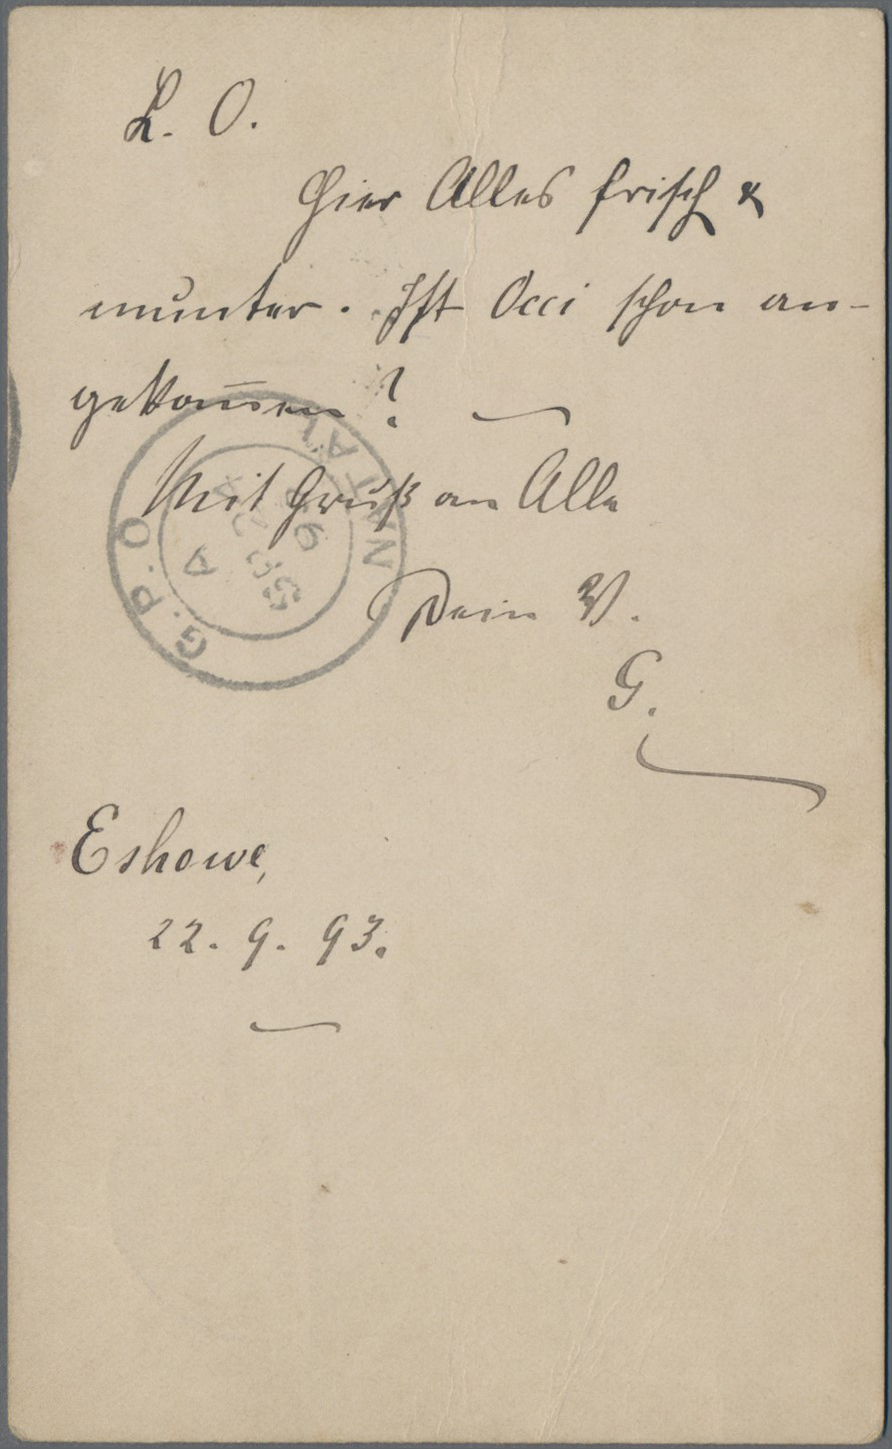 L. O.
Hier Alles frisch &
munter. Ist Occi schon an-
gekom̅en?
Mit Gruß an Alle
Dein V.
G.
Eshowe,
22. 9. 93.
G.P.O. NATAL
A
SP 24
93